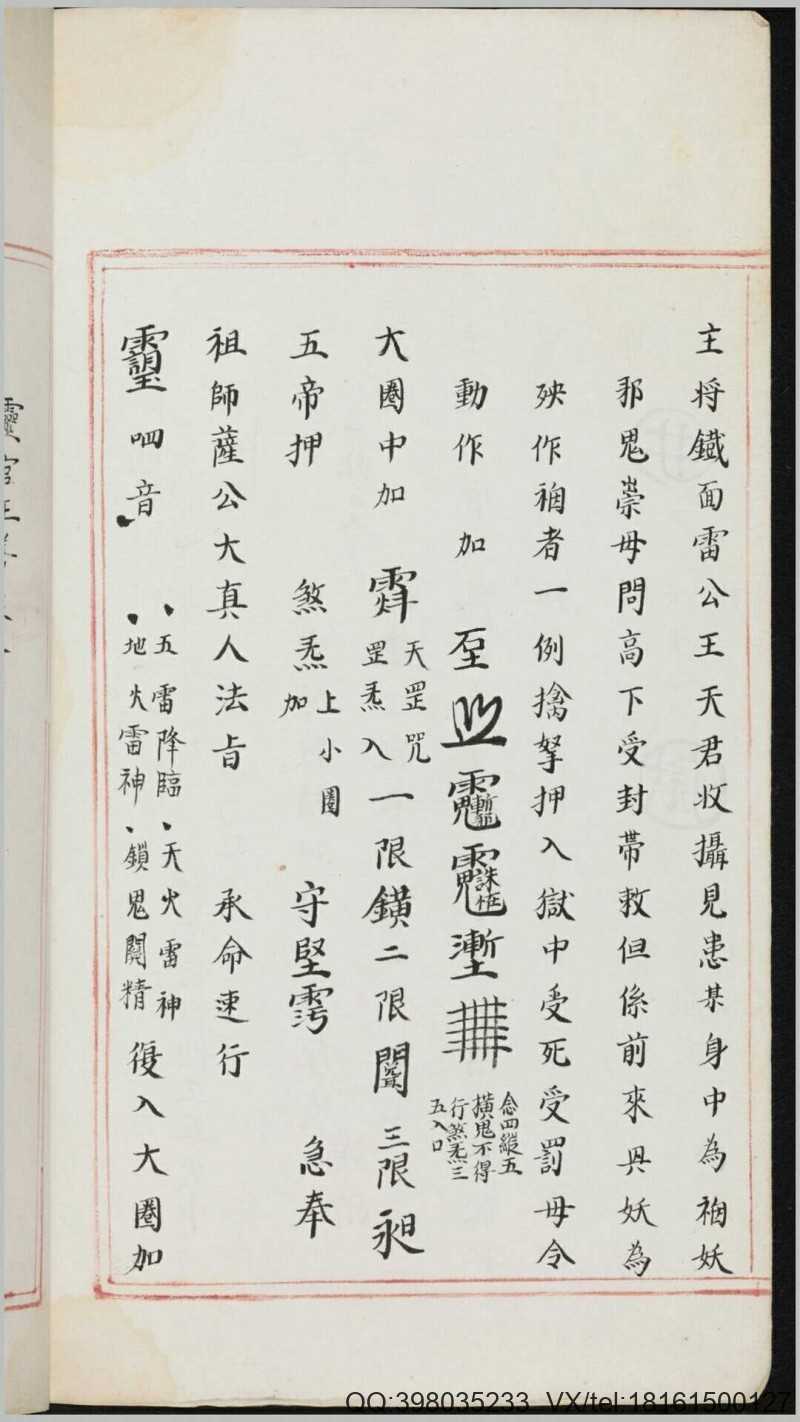 主将鐵面雷公王天君收攝見患某身中為禍妖
邪鬼祟毋問高下受封帶敕但係前來興妖為
殃作禍者一例擒拏押入獄中受死受罰毋令
動作 加
念四縱五
橫鬼不得
行煞炁三
五入口
大圈中加 天罡咒
罡炁入 一限鐄二限闖三限
五帝押 煞炁 上小圈
加 守堅雩 急奉
祖師薩公大真人法旨 承命速行
呬音 五雷降臨 天火雷神
地火雷神 鎖鬼關精 復入大圈加
QQ:398035233 VX/tel:18161500127